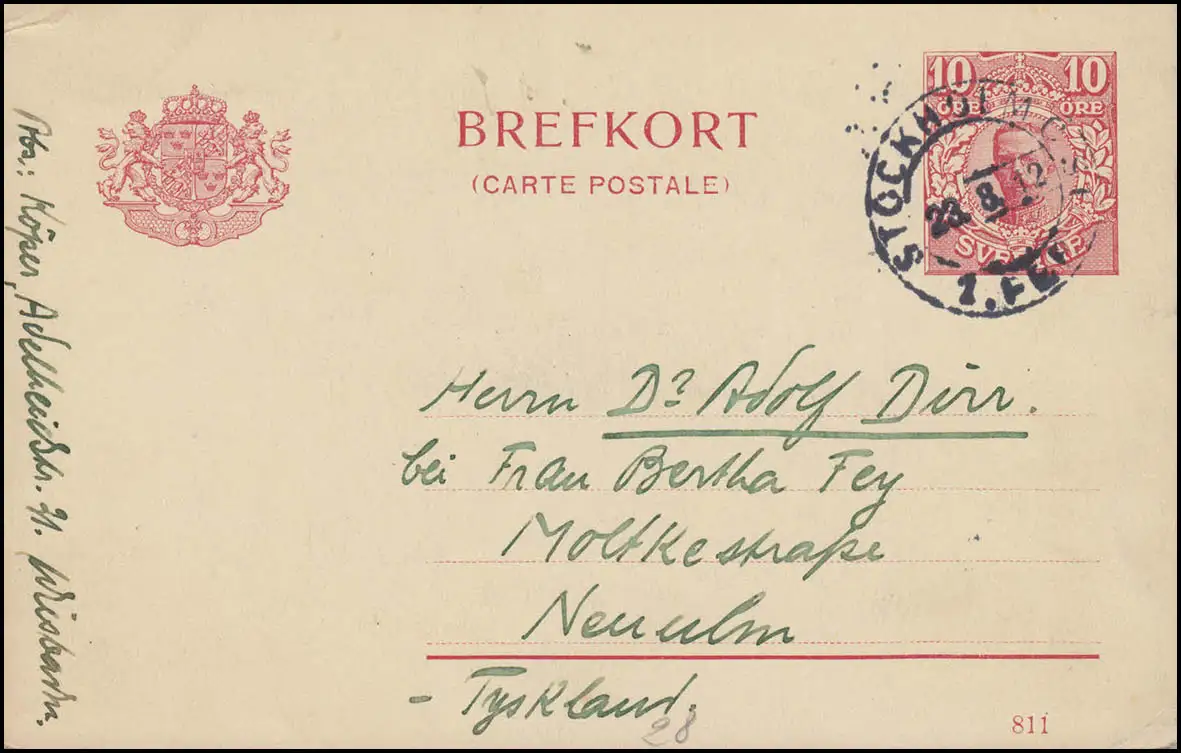 BREFKORT
(CARTE POSTALE)
10 10
ÖRE ÖRE
SVERIGE
STOCKHOLM
23. 8. 12
1. FEL
Herrn Dr Adolf Dirr.
bei Frau Bertha Fey
Moltkestraße
Neu ulm
- Tyskland.
28
811
Abs: Köper, Adelheidstr. 91. Wiesbaden.